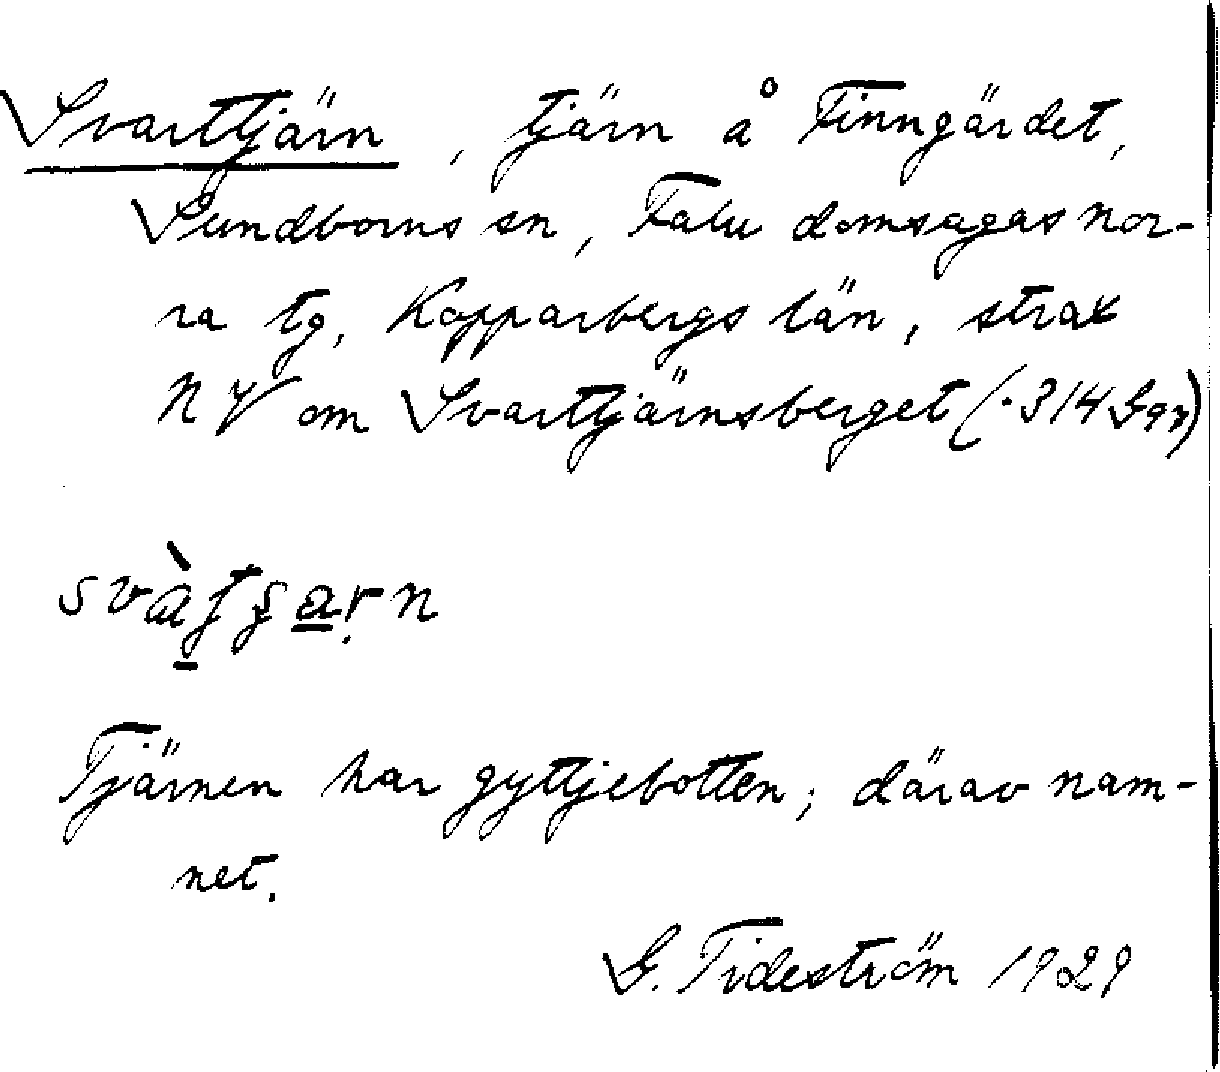 Svarttjärn, tjärn å Finngärdet,
Sundborns sn, Falu domsagas nor-
ra tg, Kopparbergs län, strax
NV om Svarttjärnsberget (·314
Tjärnen har gyttjebotten; därav nam-
net.
G. Tideström 1929